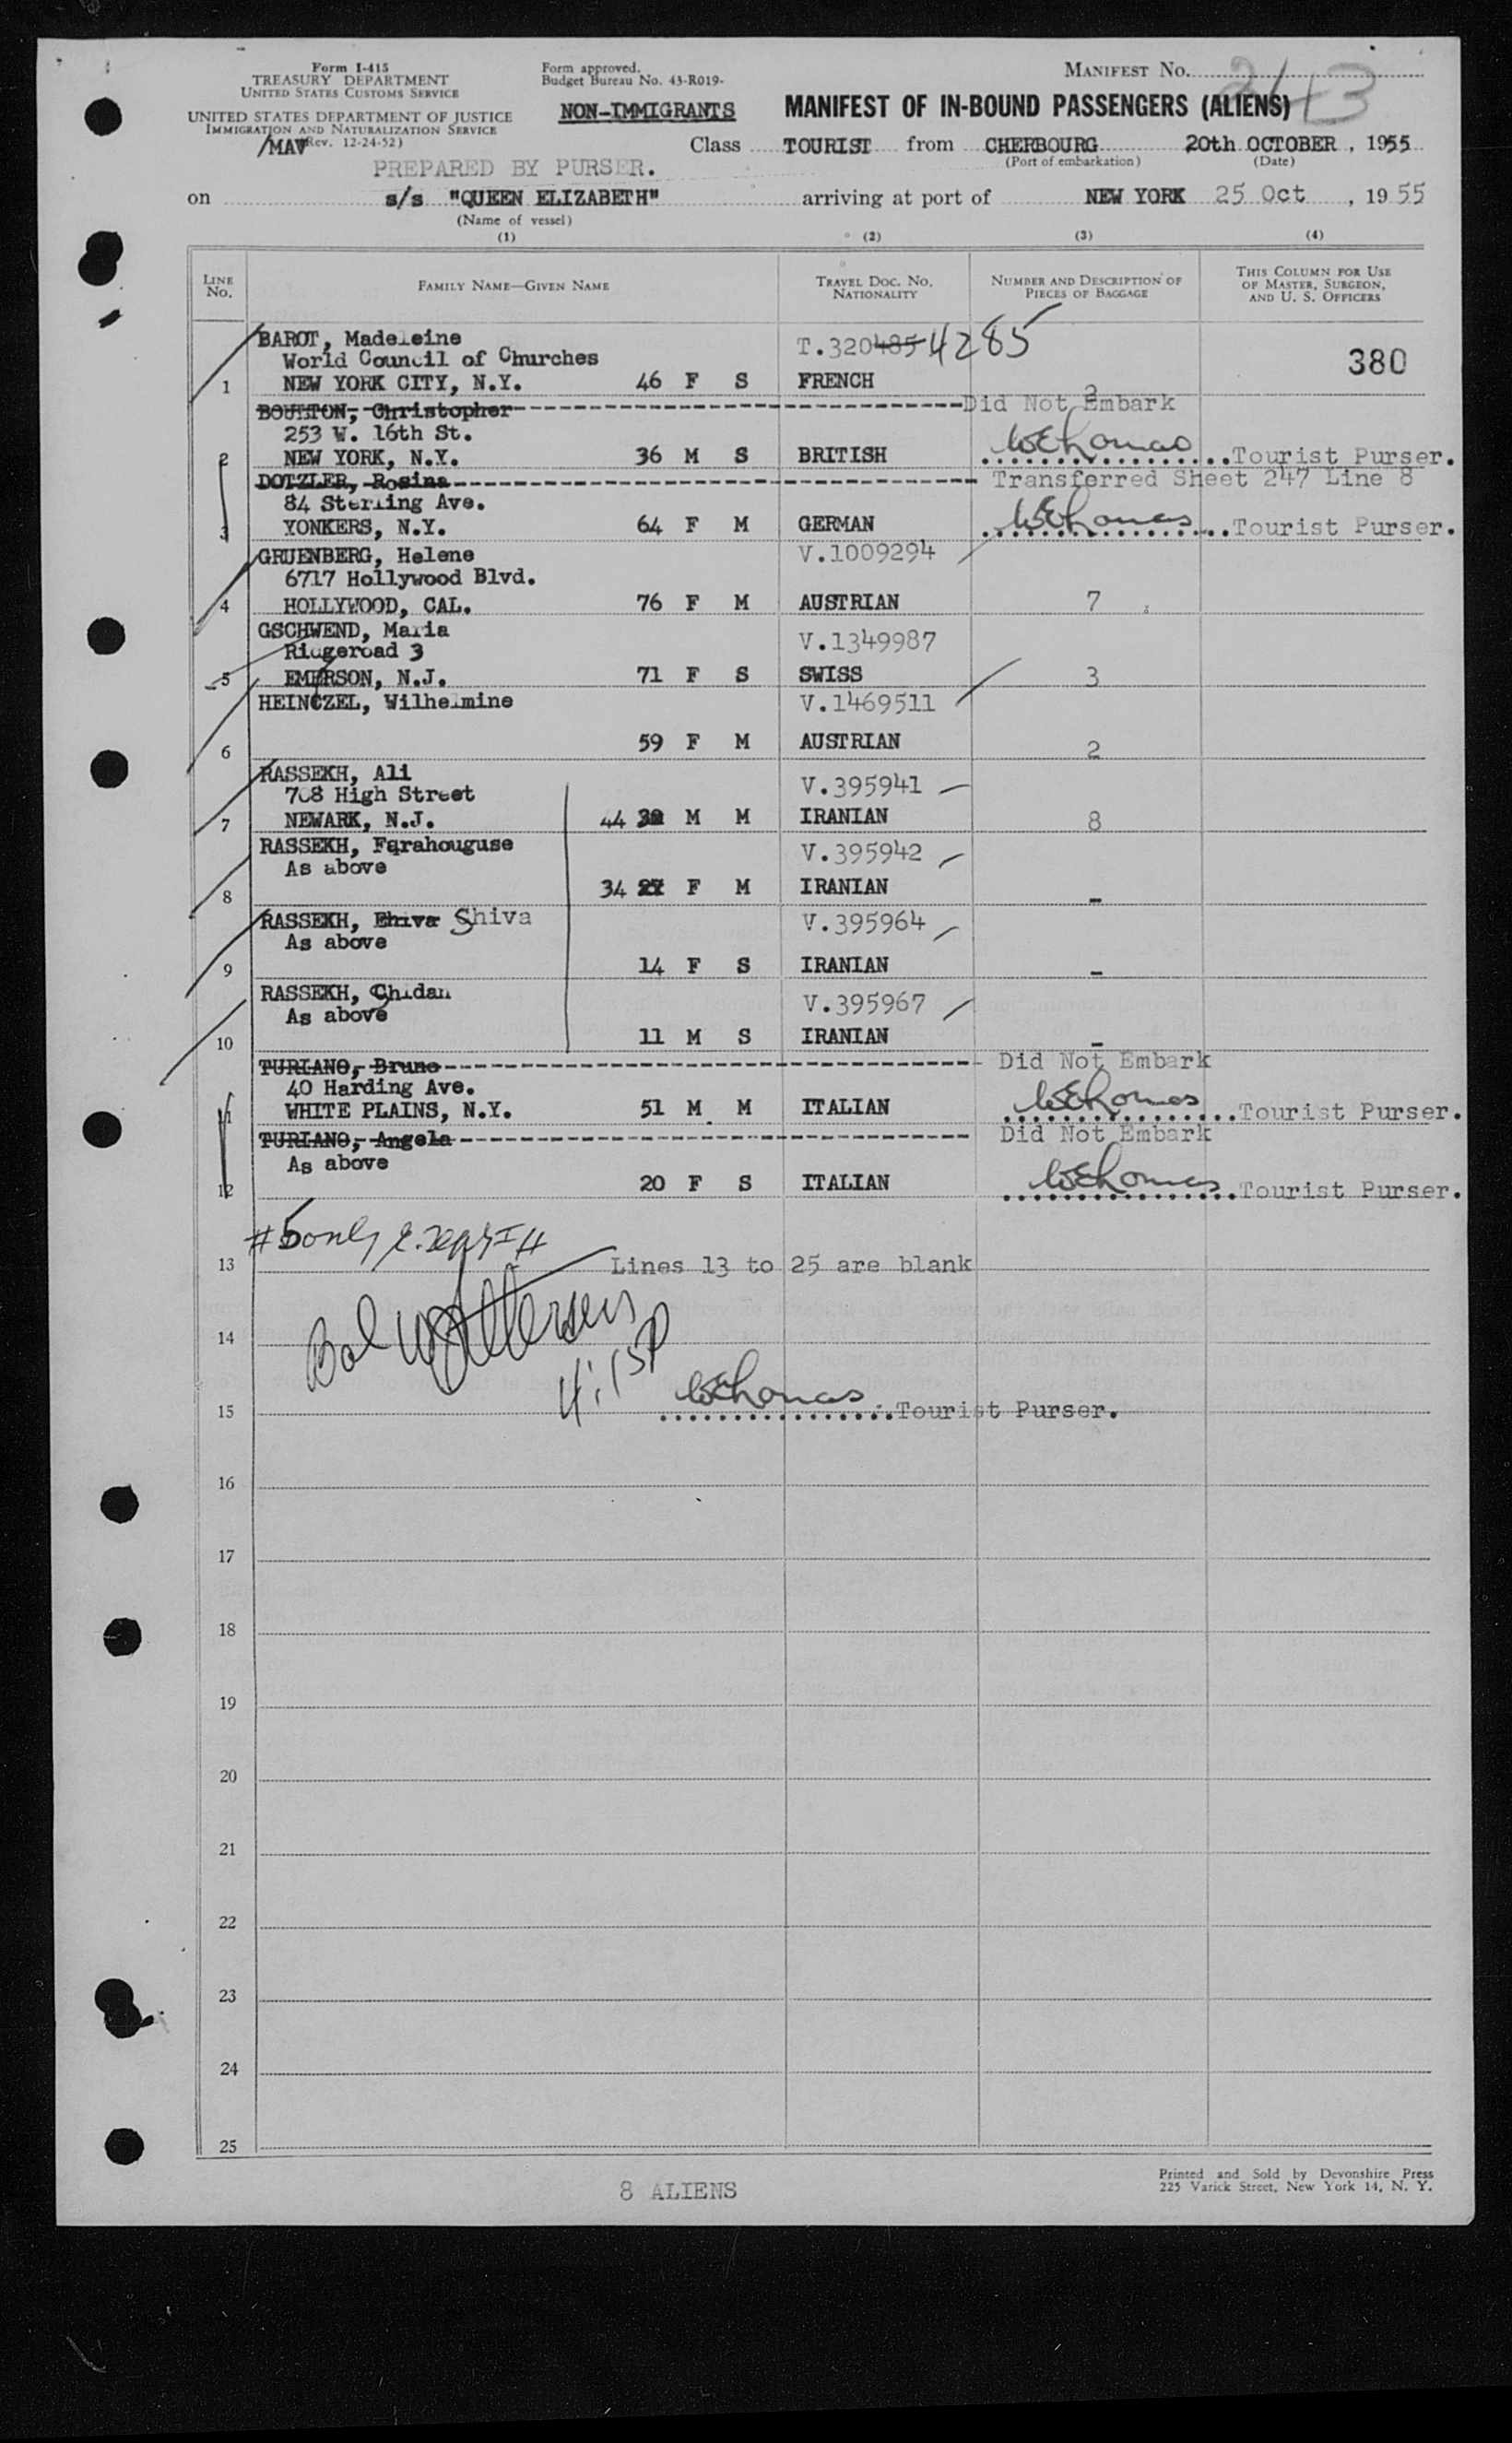 Form I-415
TREASURY DEPARTMENT
UNITED STATES CUSTOMS SERVICE
UNITED STATES DEPARTMENT OF JUSTICE
IMMIGRATION AND NATURALIZATION SERVICE
/MAV Rev. 12-24-52)
Form approved.
Budget Bureau No. 43-R019-
NON-IMMIGRANTS
MANIFEST NO. 243
MANIFEST OF IN-BOUND PASSENGERS (ALIENS)
Class TOURIST from CHERBOURG 20th OCTOBER, 1955
(Port of embarkation) (Date)
PREPARED BY PURSER.
on s/s "QUEEN ELIZABETH" arriving at port of NEW YORK 25 Oct, 1955
(Name of vessel)
(1) (2) (3) (4)
LINE NO. FAMILY NAME—GIVEN NAME TRAVEL DOC. NO. NATIONALITY NUMBER AND DESCRIPTION OF PIECES OF BAGGAGE THIS COLUMN FOR USE OF MASTER, SURGEON, AND U. S. OFFICERS
BAROT, Madeleine T.320485 4285
World Council of Churches 380
1 NEW YORK CITY, N.Y. 46 F S FRENCH 2
BOULTON, Christopher Did Not Embark
253 W. 16th St.
2 NEW YORK, N.Y. 36 M S BRITISH WEThomas Tourist Purser.
DOTZLER, Rosina Transferred Sheet 247 Line 8
84 Sterling Ave.
3 YONKERS, N.Y. 64 F M GERMAN WEThomas Tourist Purser.
GRUENBERG, Helene V.1009294
6717 Hollywood Blvd.
4 HOLLYWOOD, CAL. 76 F M AUSTRIAN 7
GSCHWEND, Maria V.1349987
Ridgeroad 3
5 EMERSON, N.J. 71 F S SWISS 3
HEINCZEL, Wilhelmine V.1469511
6 59 F M AUSTRIAN 2
RASSEKH, Ali V.395941
708 High Street
7 NEWARK, N.J. 44 M M IRANIAN 8
RASSEKH, Farahouguse V.395942
As above
8 34 27 F M IRANIAN -
RASSEKH, Ehiva Shiva V.395964
As above
9 14 F S IRANIAN -
RASSEKH, Chidan V.395967
As above
10 11 M S IRANIAN -
TURIANO, Bruno Did Not Embark
40 Harding Ave.
11 WHITE PLAINS, N.Y. 51 M M ITALIAN WEThomas Tourist Purser.
TURIANO, Angela Did Not Embark
As above
12 20 F S ITALIAN WEThomas Tourist Purser.
#5 only
13 Lines 13 to 25 are blank
14
4:15P
15 WEThomas Tourist Purser.
16
17
18
19
20
21
22
23
24
25
8 ALIENS
Printed and Sold by Devonshire Press
225 Varick Street, New York 14, N. Y.